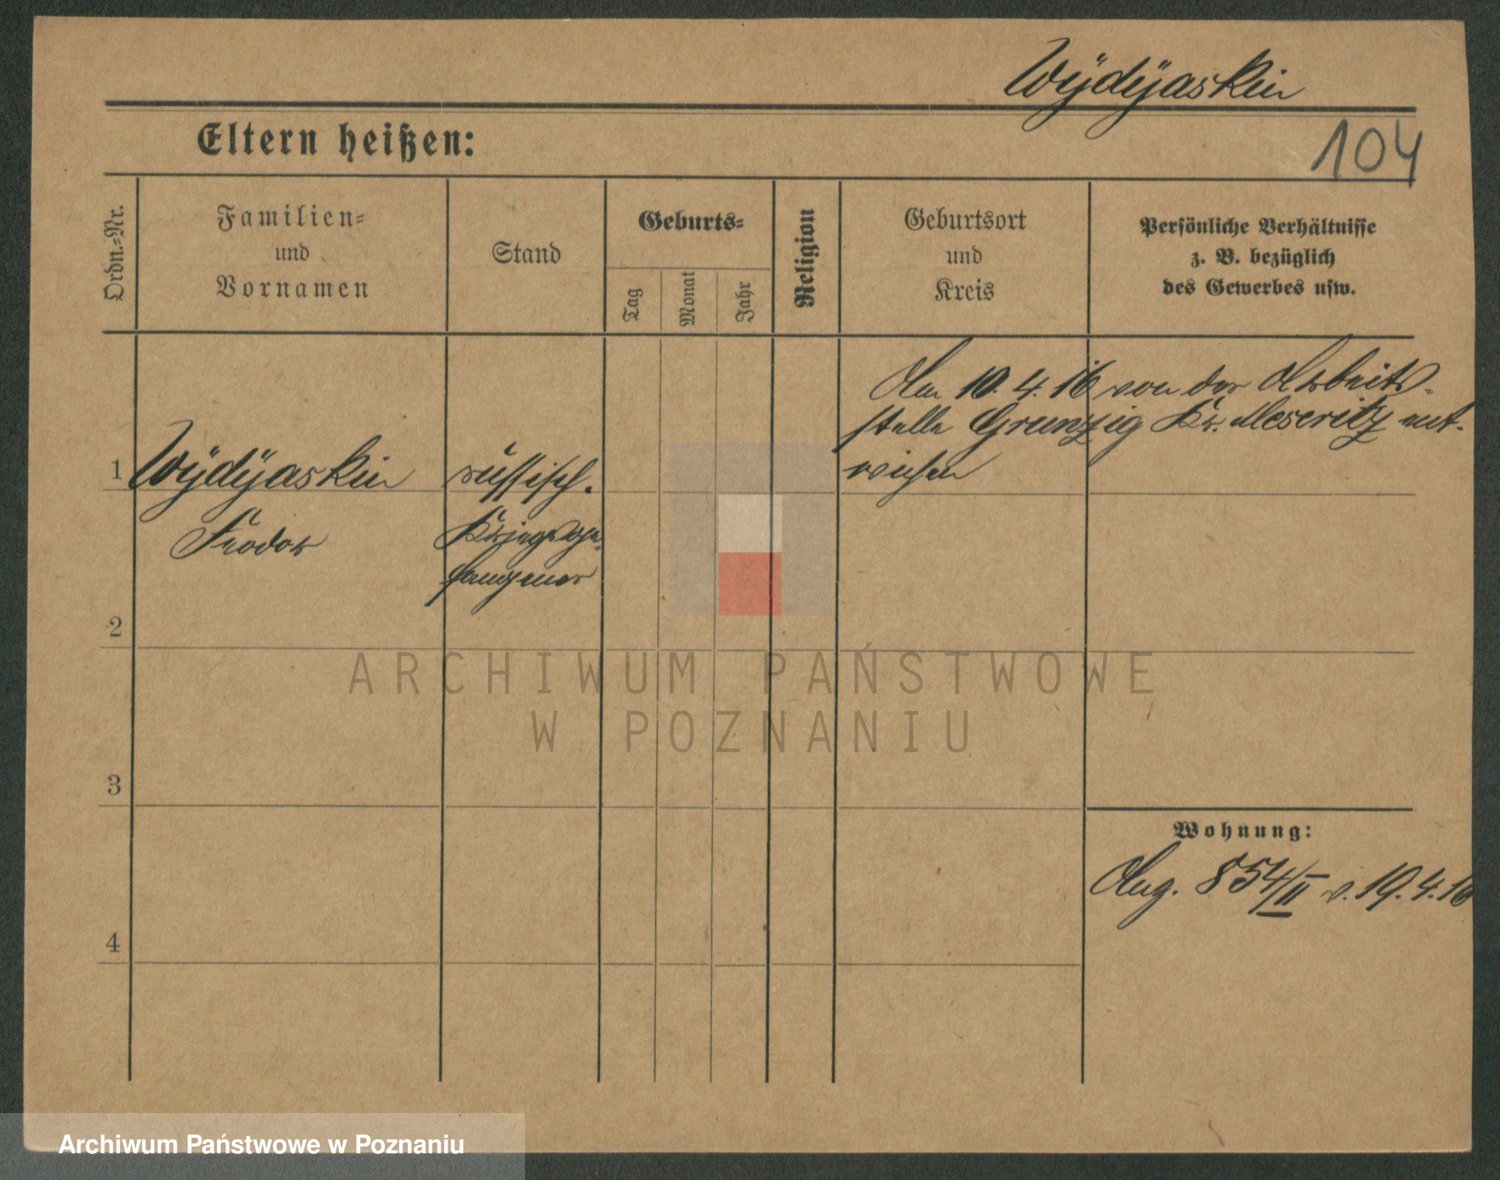 Wÿdÿaskin
104
Eltern heißen:
Ordn.-Nr.
Familien-
und
Vornamen
Stand
Geburts-
Tag
Monat
Jahr
Religion
Geburtsort
und
Kreis
Persönliche Verhältnisse
z. B. bezüglich
des Gewerbes usw.
1
Wÿdÿaskin
Feodor
russisch.
Kriegsge-
fangener
Am 10.4.16 von der Arbeits-
stelle Grunzig Kr. Meseritz ent-
wichen
2
3
4
Wohnung:
Ang. 854/II v. 19.4.16
ARCHIWUM PAŃSTWOWE
W POZNANIU
Archiwum Państwowe w Poznaniu